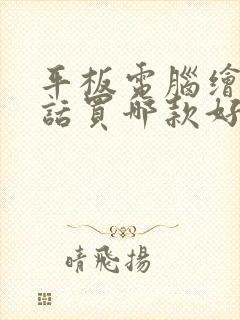 平板電腦繪
話買哪款好
晴飛揚